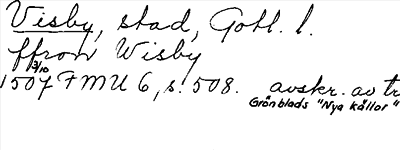 Visby, stad, Gotl. l.
ffron Wisby
3/10
1507 FMU 6, s. 508. avskr. av tr
Grönblads "Nya källor"